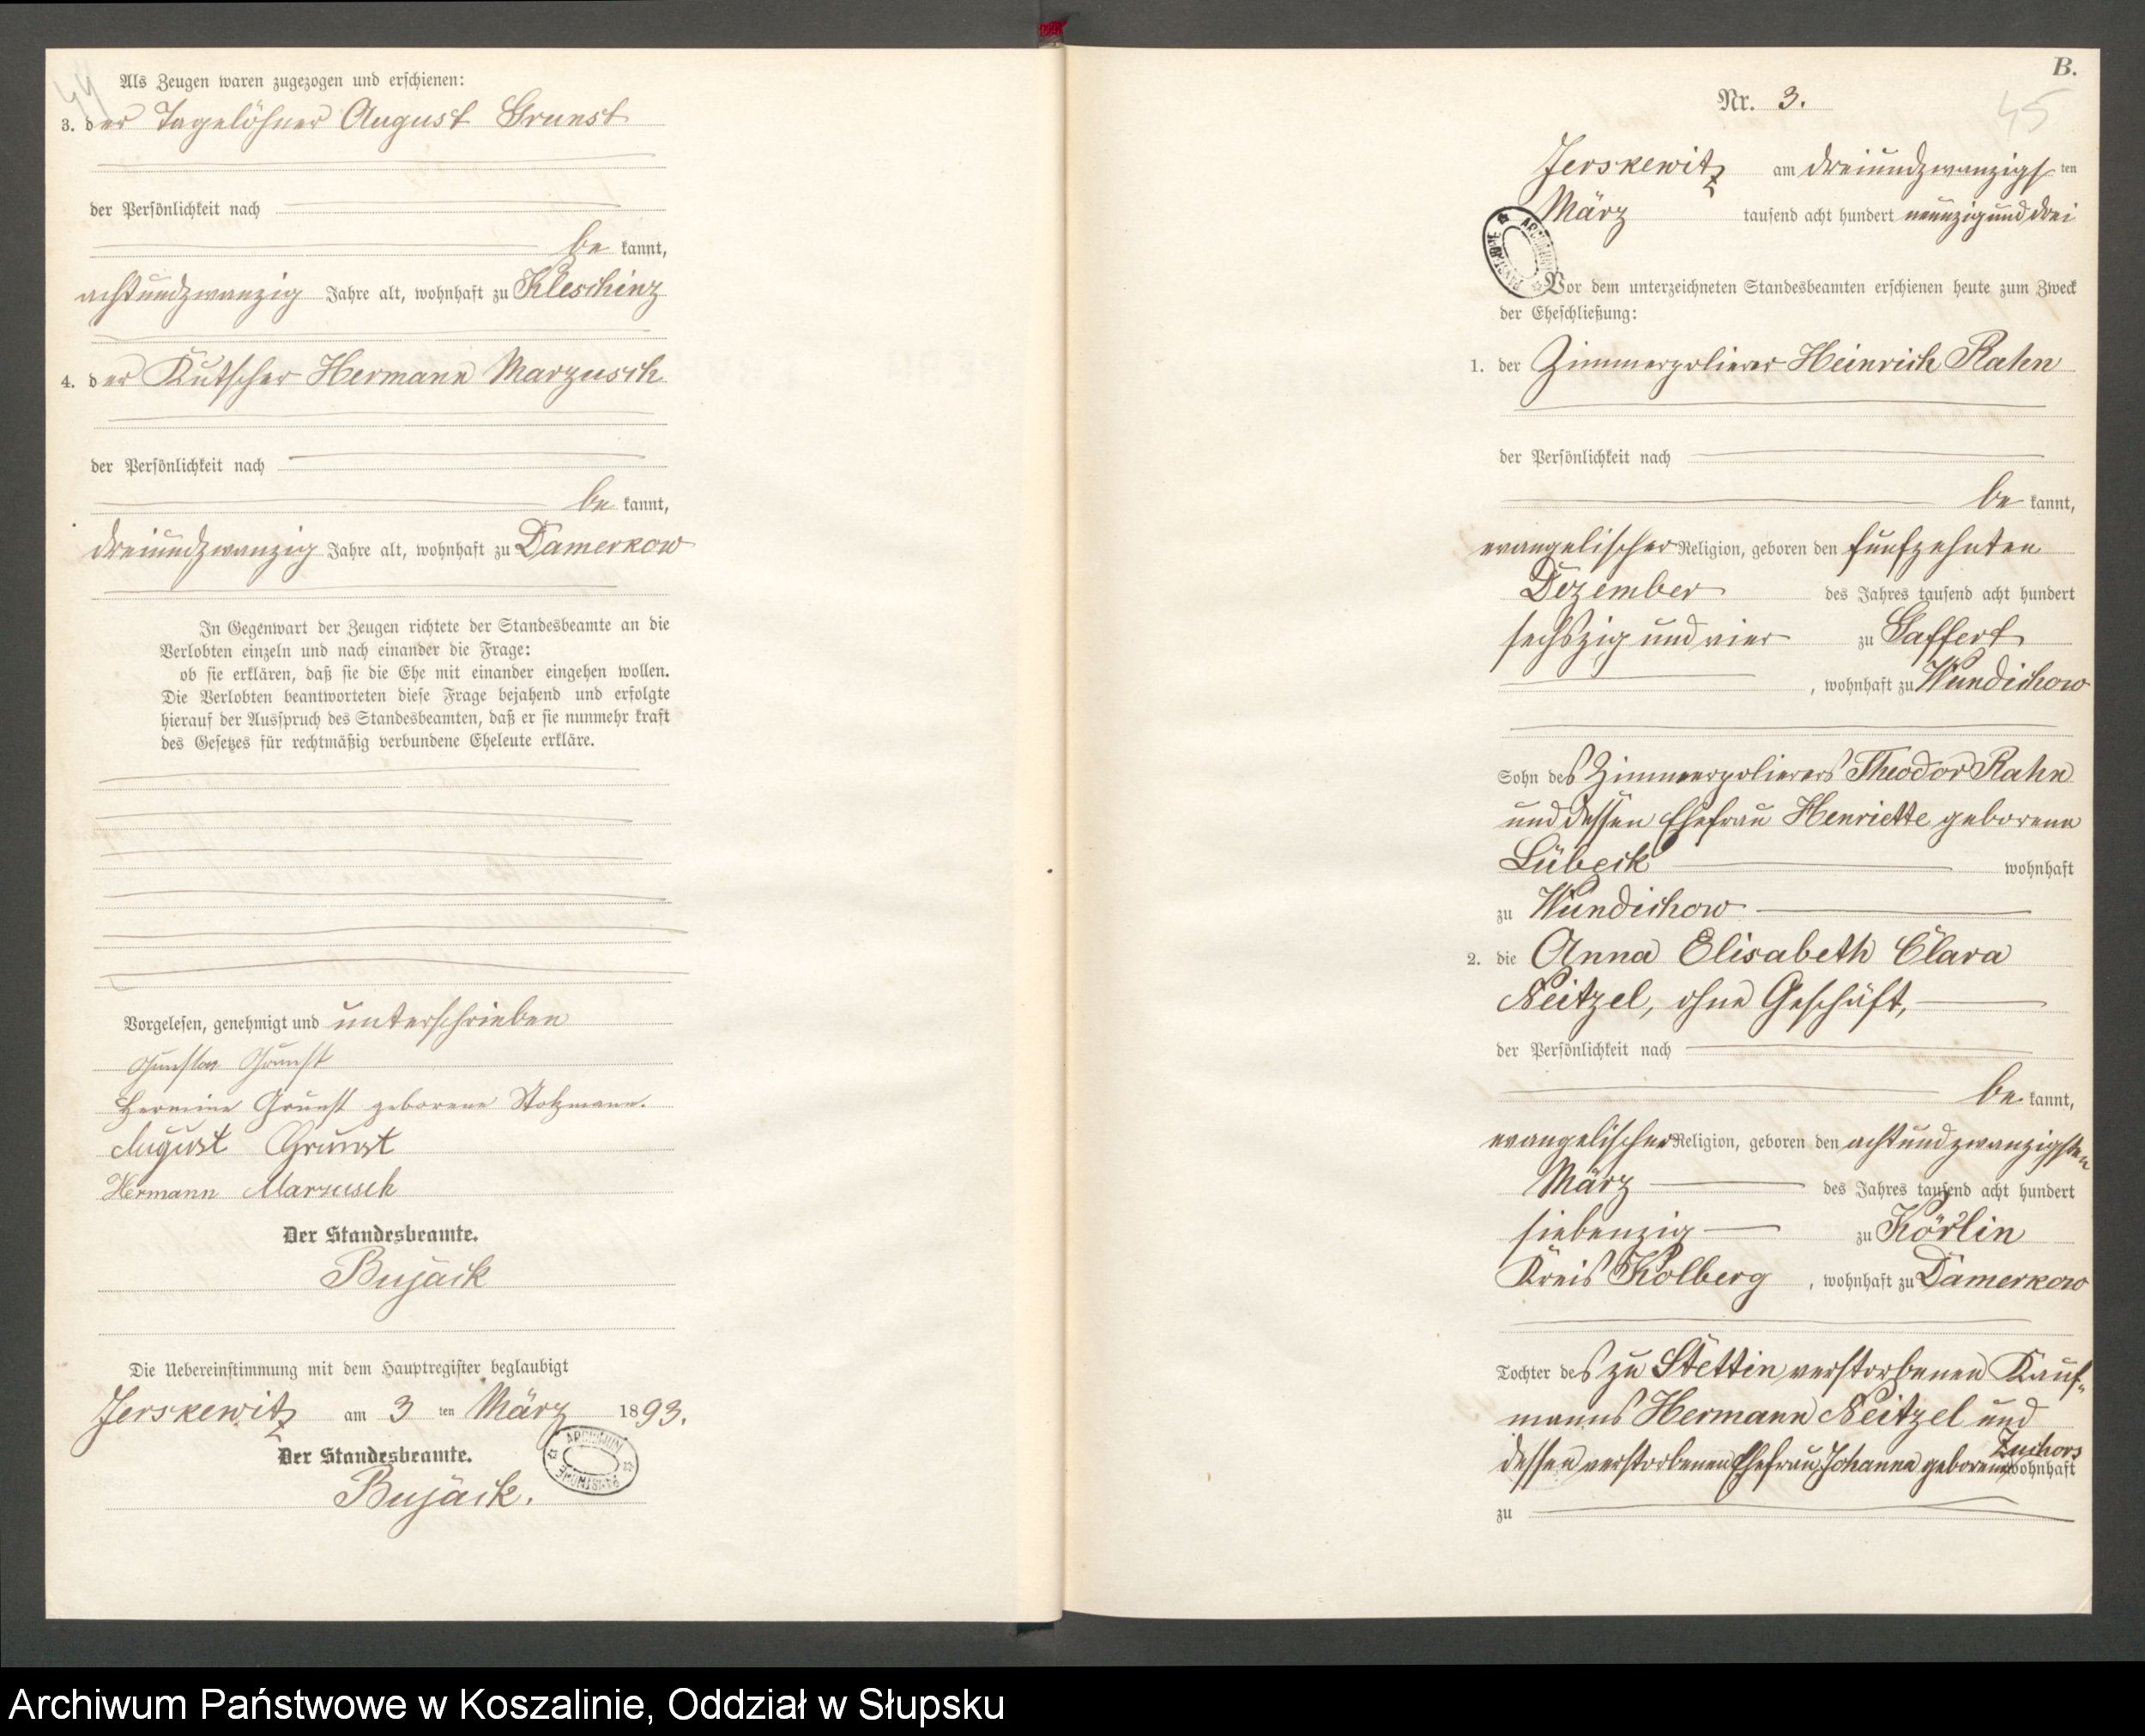 44
Als Zeugen waren zugezogen und erschienen:
3. der Tagelöhner August Grunst
der Persönlichkeit nach
be kannt,
achtundzwanzig Jahre alt, wohnhaft zu Kleschinz
4. der Kutscher Hermann Marzusch
der Persönlichkeit nach
be kannt,
dreiundzwanzig Jahre alt, wohnhaft zu Damerkow
In Gegenwart der Zeugen richtete der Standesbeamte an die
Verlobten einzeln und nach einander die Frage:
ob sie erklären, daß sie die Ehe mit einander eingehen wollen.
Die Verlobten beantworteten diese Frage bejahend und erfolgte
hierauf der Ausspruch des Standesbeamten, daß er sie nunmehr kraft
des Gesetzes für rechtmäßig verbundene Eheleute erkläre.
Vorgelesen, genehmigt und unterschrieben
Grunst
Hermine Grunst geborene Stolzmann.
August Grunst
Hermann Marzusch
Der Standesbeamte.
Bujack
Die Uebereinstimmung mit dem Hauptregister beglaubigt
Jerskewitz am 3 ten März 1893.
Der Standesbeamte.
Bujack.
ARCHIWUM PAŃSTWOWE
B.
Nr. 3.
45
Jerskewitz am dreiundzwanzigs ten
März tausend acht hundert neunzig und drei
ARCHIWUM PAŃSTWOWE
Vor dem unterzeichneten Standesbeamten erschienen heute zum Zweck
der Eheschließung:
1. der Zimmerpolierer Heinrich Rahn
der Persönlichkeit nach
be kannt,
evangelischer Religion, geboren den fünfzehnten
Dezember des Jahres tausend acht hundert
sechszig und vier zu Gaffert
, wohnhaft zu Wundichow
Sohn des Zimmerpolierers Theodor Rahn
und dessen Ehefrau Henriette geborene
Lübeck wohnhaft
zu Wundichow
2. die Anna Elisabeth Clara
Neitzel, ohne Geschäft,
der Persönlichkeit nach
be kannt,
evangelischer Religion, geboren den achtundzwanzigsten
März des Jahres tausend acht hundert
siebenzig zu Körlin
Kreis Kolberg , wohnhaft zu Damerkow
Tochter des zu Stettin verstorbenen Kauf-
manns Hermann Neitzel und
dessen verstorbenen Ehefrau Johanne geborene Zuchors wohnhaft
zu
Archiwum Państwowe w Koszalinie, Oddział w Słupsku